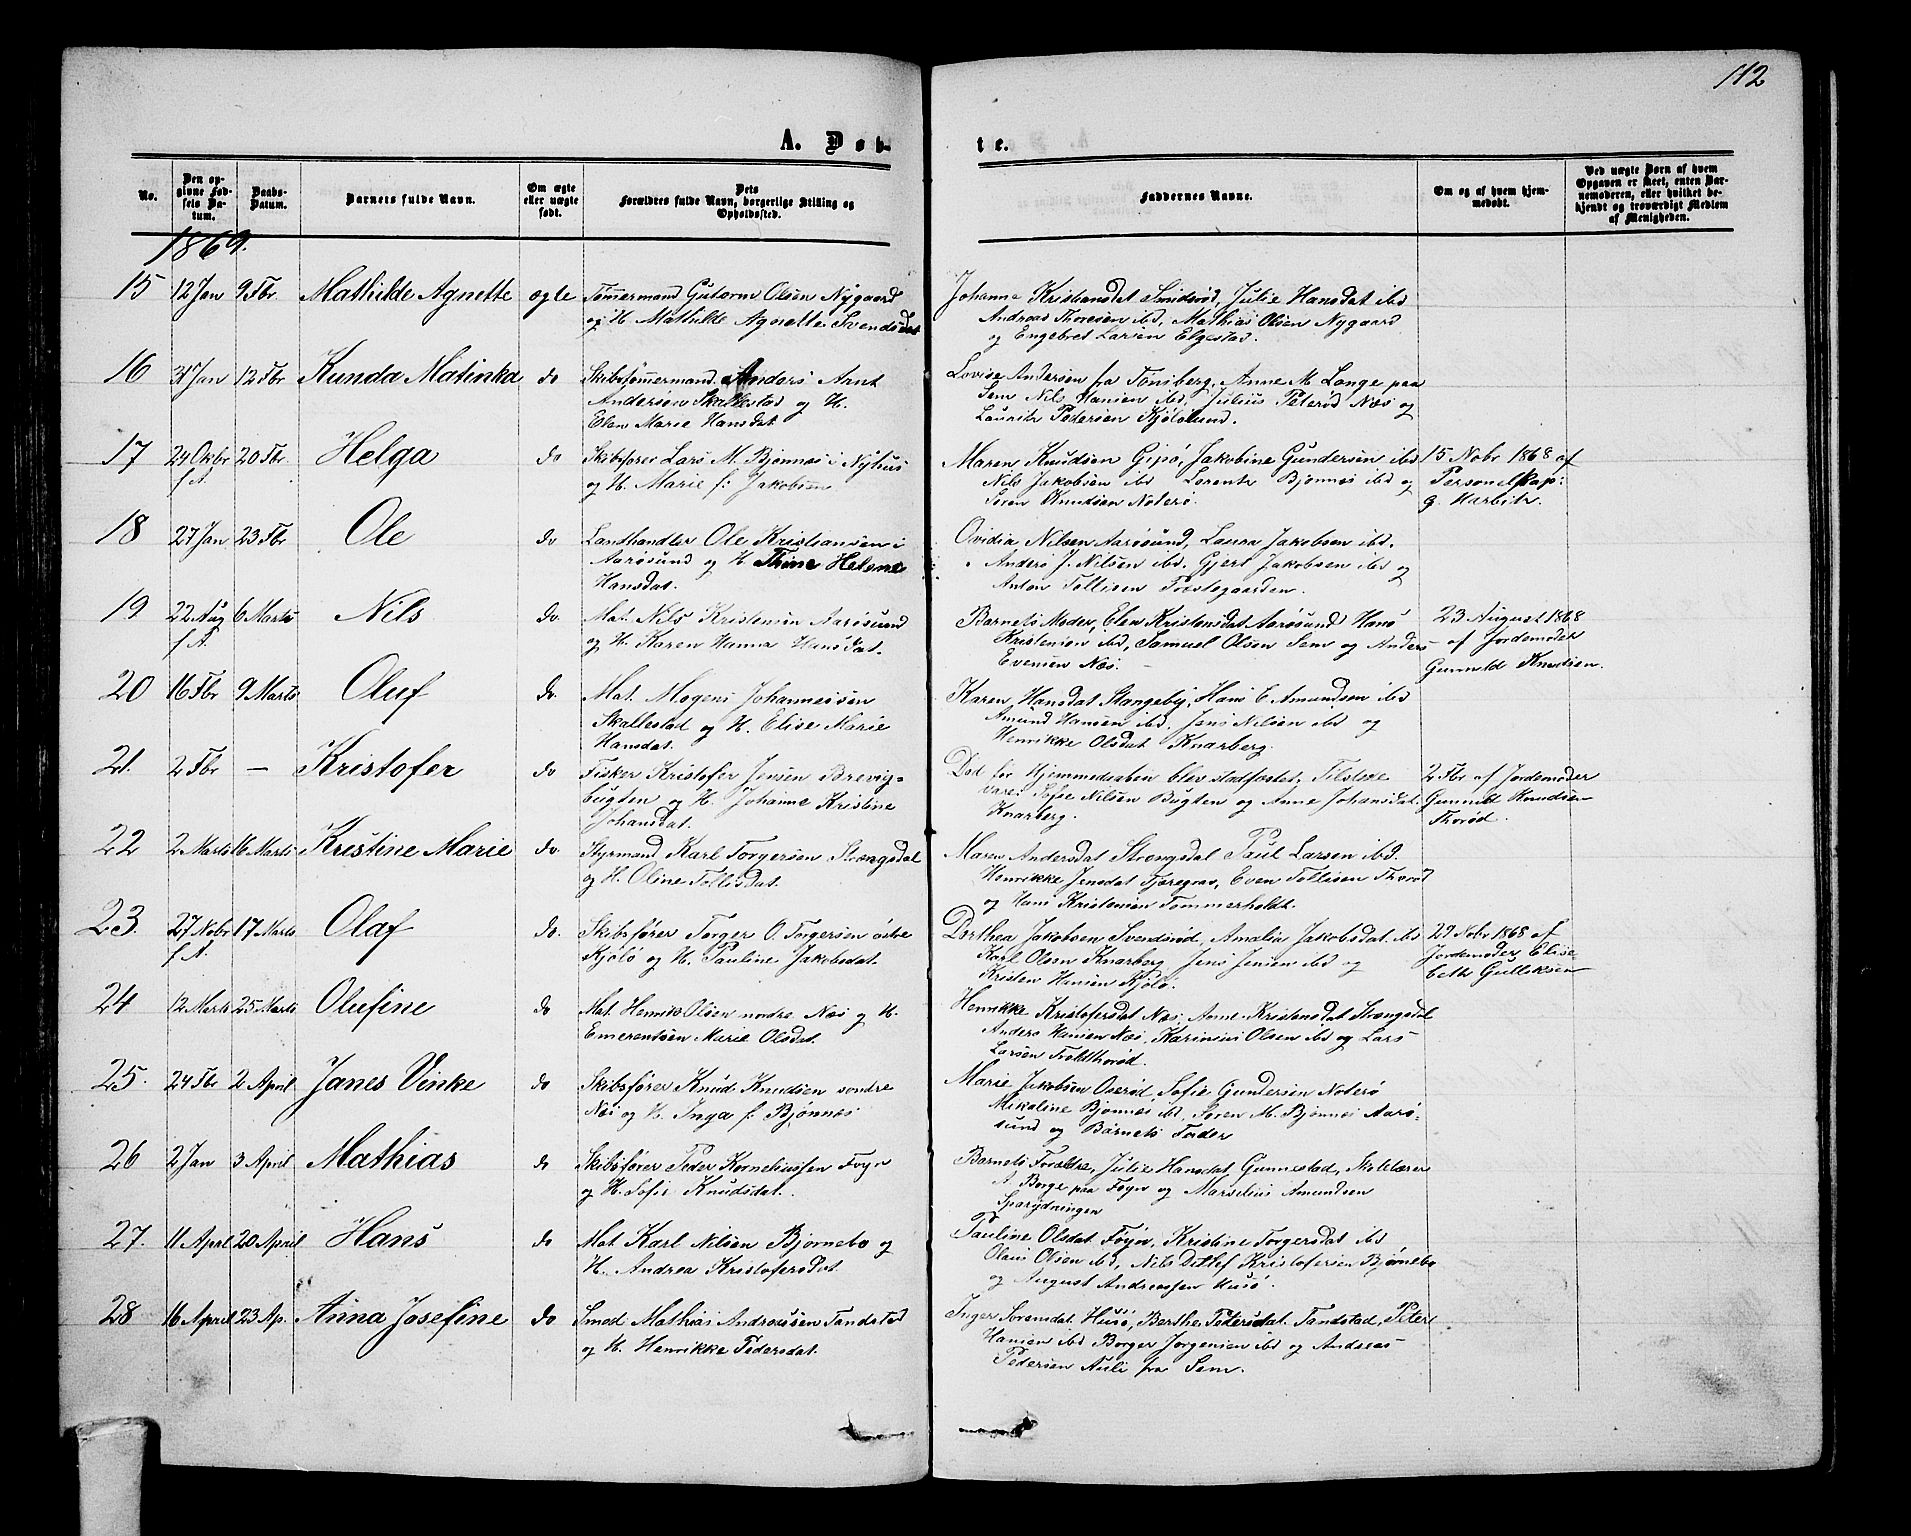 112
A. Døb-
te.
No.
Den op-
givne Fød-
sels Da-
tum.
Daabs-
Datum.
Barnets fulde Navn.
Om ægte
eller uægte
født.
Dets
Forældres fulde Navn, borgerlige Stilling og
Opholdssted.
Faddernes Navne.
Om og af hvem hjem-
medøbt.
Ved uægte Børn af hvem
Opgaven er skeet, enten Bar-
nemoderen, eller hvilket be-
kjendt og troværdigt Medlem
af Menigheden.
1869.
15 12 Jan 9 Fbr. Mathilde Agnette ægte Tømmermand Gutorm Olsen Nygaard
og H. Mathilde Agnette Svendsdat
Johanne Kristiansdat Smidsrød, Julie Hansdat ibd
Andreas Thoresen ibd, Mathias Olsen Nygaard
og Engebret Larsen Elgestad.
16 31 Jan 12 Fbr Kunda Matinka do Skibstømmermand Anders Arnt
Andersen Skallestad og H.
Elen Marie Hansdat
Lovise Andersen fra Tønsberg, Anne M. Lange paa
Sem Nils Hansen ibd, Julius Peterød Næs og
Lauritz Pedersen Kjøløsund.
17 24 Okbr 20 Fbr. Helga do Skibsfører Lars M. Bjønnes i Nyhus
f A. og H. Marie f: Jakobsen
Maren Knudsen Gipø, Jakobine Gundersen ibd
Nils Jakobsen ibd Lorentz Bjønnes ibd og
Søren Knudsen Noterø.
15 Nobr 1868 af
Personelkap:
g. Harbitz.
18 27 Jan 23 Fbr Ole do Landhandler Ole Kristiansen i
Aarøsund og H. Thine Helene
Hansdat.
Ovidia Nilsen Aarøsund, Laura Jakobsen ibd.
Anders J. Nilsen ibd. Gjert Jakobsen ibd og
Anton Tollisen Præstegaarden.
19 22 Aug 6 Marts Nils do. Mat. Nils Kristensen Aarøsund
f A. og H. Karen Hanna Hansdat.
Barnets Moder, Elen Kristensdat Aarøsund, Hans
Kristensen ibd, Samuel Olsen Sem og Anders
Evensen Næs.
23 August 1868
af Jordemoder
Gunnild Knudsen.
20 16 Fbr 9 Marts Oluf do. Mat. Mogens Johannessen
Skallestad og H. Elise Marie
Hansdat.
Karen Hansdat Stangeby, Hans E. Amundsen ibd
Amund Hansen ibd. Jens Nilsen ibd og
Henrikke Olsdat Knarberg.
21. 2 Fbr — Kristofer do Fisker Kristofer Jensen Brevig-
bugten og H. Johanne Kristine
Johansdat.
Død før Hjemmedaaben blev stadfæstet. Tilstede
vare: Sofie Nilsen Bugten og Anne Johansdat
Knarberg.
2 Fbr af Jordemoder
Gunnild Knudsen
Thorød.
22 2 Marts 16 Marts Kristine Marie do. Styrmand Karl Torgersen Strengsdal
og H. Oline Tollisdat.
Maren Andersdat Strengsdal Paul Larsen ibd.
Henrikke Jensdat Fjæregrav, Even Tollisen Thorød
og Hans Kristensen Tømmerholdt.
23. 27 Nobr 17 Marts Olaf do. Skibsfører Torger O. Torgersen østre
f A. Kjølø og H. Pauline Jakobsdat.
Dorthea Jakobsen Svendsrød, Amalia Jakobsdat. ibd
Karl Olsen Knarberg Jens Jensen ibd og
Kristen Hansen Kjølø.
29 Nobr 1868 af
Jordemoder Elisa-
beth Gulliksen
24 12 Marts 25 Marts Olufine do Mat. Henrik Olsen nordre Næs og H.
Emerentsen Marie Olsdat.
Henrikke Kristofersdat Næs, Anne Kristensdat Strengsdal
Anders Hansen Næs, Karinius Olsen ibd og Lars
Larsen Troldthorød.
25. 24 Fbr 2 April Janes Vinke do Skibsfører Knud Knudsen søndre
Næs og H. Inga f. Bjønnes
Marie Jakobsen Oserød, Sofie Gundersen Noterø
Mikaline Bjønnes ibd, Søren M. Bjønnes Aarø-
sund og Barnets Fader
26 2 Jan 3 April Mathias do Skibsfører Peder Korneliussen Føyn
og H. Sofie Knudsdat.
Barnets Forældre, Julie Hansdat Gunnestad, Skolelærer
A. Borge paa Føyn og Marselius Amundsen
Sparrydningen
27. 11 April 20 April Hans do Mat Karl Nilsen Bjørnebo og
H. Andrea Kristofersdat.
Pauline Olsdat Føyn, Kristine Torgersdat ibd
Olaus Olsen ibd, Nils Ditlef Kristofersen Bjørnebo
og August Andreassen Husø.
28 16 April 23 Ap. Anna Josefine do Smed Mathias Andreassen Tandstad
og H. Henrikke Pedersdat.
Inger Sørensdat Husø, Berthe Pedersdat Tandstad, Peter
Hansen ibd Borger Jørgensen ibd og Andreas
Pedersen Auli fra Sem.